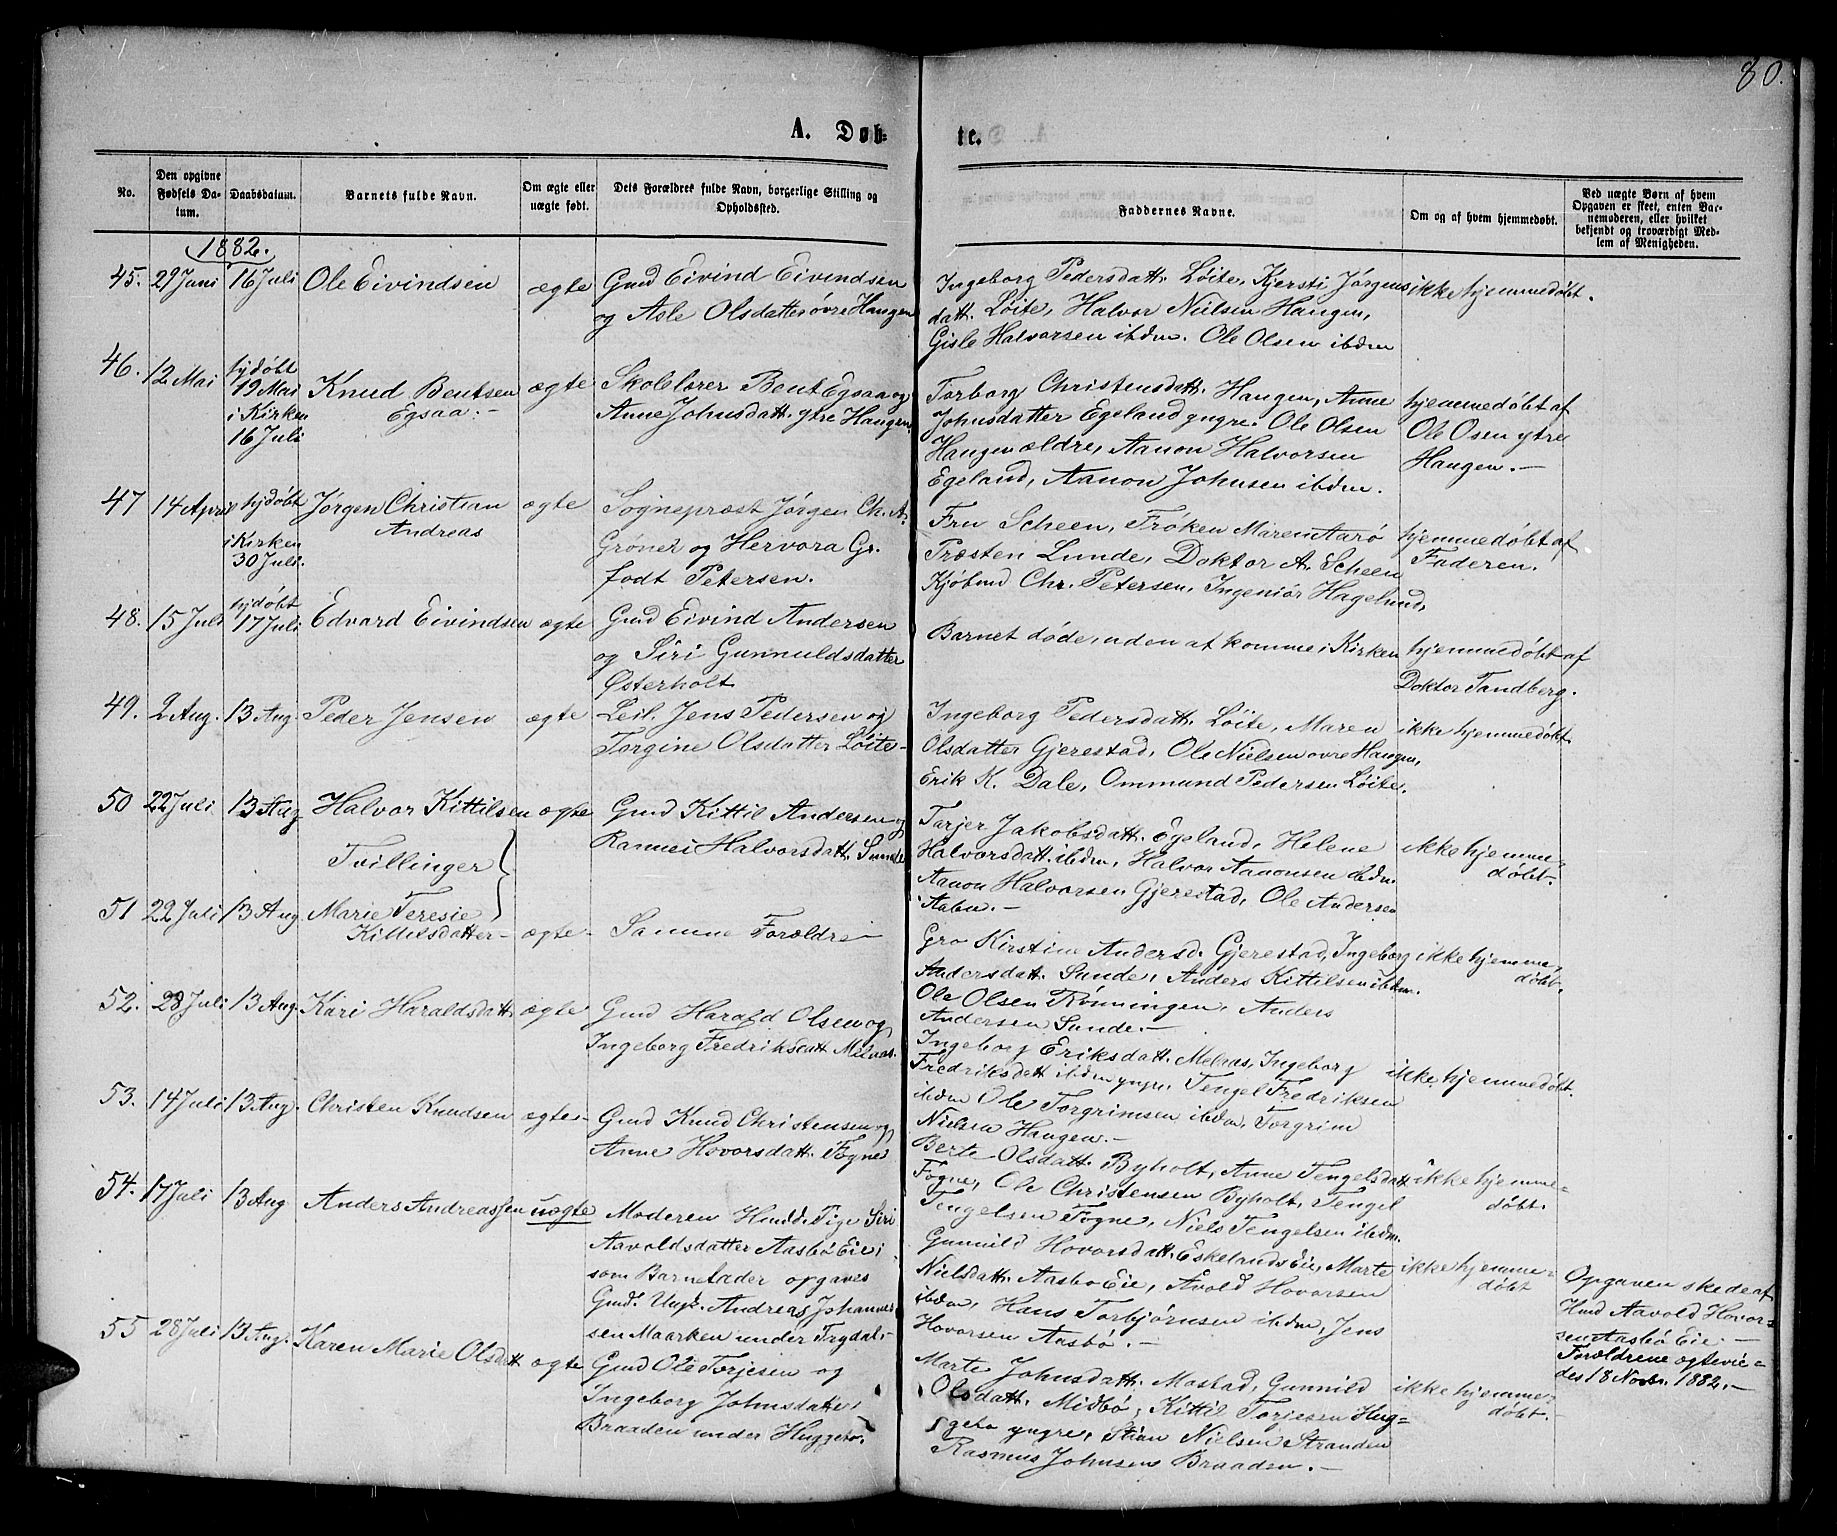 80.
A. Døb-
te.
No.
Den opgivne Fødsels Datum.
Daabsdatum.
Barnets fulde Navn.
Om ægte eller uægte født.
Dets Forældres fulde Navn, borgerlige Stilling og Opholdssted.
Faddernes Navne.
Om og af hvem hjemmedøbt.
Ved uægte Børn af hvem Opgaven er skeet, enten Barnemoderen, eller hvilket bekjendt og troværdigt Medlem af Menigheden.
1882.
45. 29 Juni 16 Juli Ole Eivindsen ægte
Gmd Eivind Eivindsen
og Asle Olsdatter øvre Haugen
Ingeborg Pedersdatt. Løite, Kjersti Jørgens
datt. Løite, Halvor Nielsen Haugen,
Gisle Halvorsen ibdm. Ole Olsen ibdm
ikke hjemmedøbt.
46. 12 Mai
hjdøbt
19 Mai
i Kirken
16 Juli
Knud Bentsen
Egsaa.-
ægte
Skolelærer Bent Egsaa og
Anne Johnsdatt. ytre Haugen.
Torborg Christensdatt. Haugen, Anne
Johnsdatter Egeland yngre. Ole Olsen
Haugen ældre, Aanon Halvorsen
Egeland, Aanon Johnsen ibdm.
hjemmedøbt af
Ole Osen ytre
Haugen.-
47 14 April
hjdøbt
i Kirken
30 Juli.
Jørgen Christian
Andreas
ægte
Sogneprest Jørgen Ch. A.
Grøner og Hervora Gr.
født Petersen.
Fru Scheen, Frøken Maren Aarø
Præsten Lunde, Doktor A. Scheen
Kjøbmd Chr. Petersen, Ingeniør Hagelund,
hjemmedøbt af
Faderen.
48. 15 Juli
hjdøbt
17 Juli
Edvard Eivindsen ægte
Gmd Eivind Andersen
og Siri Gunnuldsdatter
Østerholt
Barnet døde, uden at komme i Kirken
hjemmedøbt af
Doktor Tandberg.
49. 2 Aug. 13 Aug. Peder Jensen ægte
Leil. Jens Pedersen og
Torgine Olsdatter Løite-
Ingeborg Pedersdatt. Løite, Maren
Olsdatter Gjerestad, Ole Nielsen øvre Haugen,
Erik K. Dale, Ommund Pedersen Løite.
ikke hjemmedøbt.
50 22 Juli 13 Aug Halvor Kittilsen ægte
Tvillinger
Gmd Kittil Andersen og
Rannei Halvorsdatt. Sunde
Tarjer Jakobsdatt. Egeland, Helene
Halvorsdatt. ibdm, Halvor Aanonsen ibdm.
Aanon Halvorsen Gjerestad, Ole Andersen
Aabu.-
ikke hjemme-
døbt.
51 22 Juli 13 Aug.
Marie Teresie
Kittilsdatter-
ægte-
Samme Forældre-
Gro Kirstine Andersd. Gjerestad, Ingeborg
Andersdatt. Sunde, Anders Kittilsen ibdm.
Ole Olsen Rønningen, Anders
Andersen Sunde.-
ikke hjemme-
døbt.
52. 28 Juli 13 Aug. Kari Haraldsdatt. ægte
Gmd Harald Olsen og
Ingeborg Fredriksdatt Melaas.
Ingeborg Eriksdatt. Melaas, Ingeborg
Fredriksdatt ibdm yngre, Tengel Fredriksen
ibdm Ole Torgrimsen ibdm, Torgrim
Nielsen Haugen.-
ikke hjemmedøbt.
53. 14 Juli 13 Aug. Christen Knudsen ægte-
Gmd Knud Christensen og
Anne Hovorsdatt. Fogne
Berte Olsdatt. Byholt, Anne Tengelsdatt
Fogne, Ole Christensen Byholt, Tengel
Tengelsen Fogne, Niels Tengelsen ibdm.
ikke hjemme-
døbt.
54. 17 Juli 13 Aug Anders Andreassen uægte
Moderen Husmd. Pige Siri
Aavoldsdatter Aasbø Eie;
som Barnefader opgaves
Gmd. Ungk. Andreas Johannes-
sen Maarken under Trydal.-
Gunnild Hovorsdatt. Eskelands Eie, Marte
Nielsdatt. Aasbø Eie, Avold Hovorsen
ibdm, Hans Torbjørnsen ibdm, Jens
Hovorsen Aasbø.-
ikke hjemme-
døbt
Opgaven skede af
Husmd Aavold Hovor-
sen Aasbø Eie.-
Forældrene ægtevie-
des 18 Novbr. 1882.-
55 28 Juli 13 Aug. Karen Marie Olsdatt ægte
Gmd Ole Torjesen og
Ingeborg Johnsdatter
Braaden under Huggeto.
Marte Johnsdatt. Mostad, Gunnild
Olsdatt. Midbø, Kittil Torjesen Hug-
geto yngre, Stian Nielsen Stranden
Rasmus Johnsens Braaden.-
ikke hjemme-
døbt.